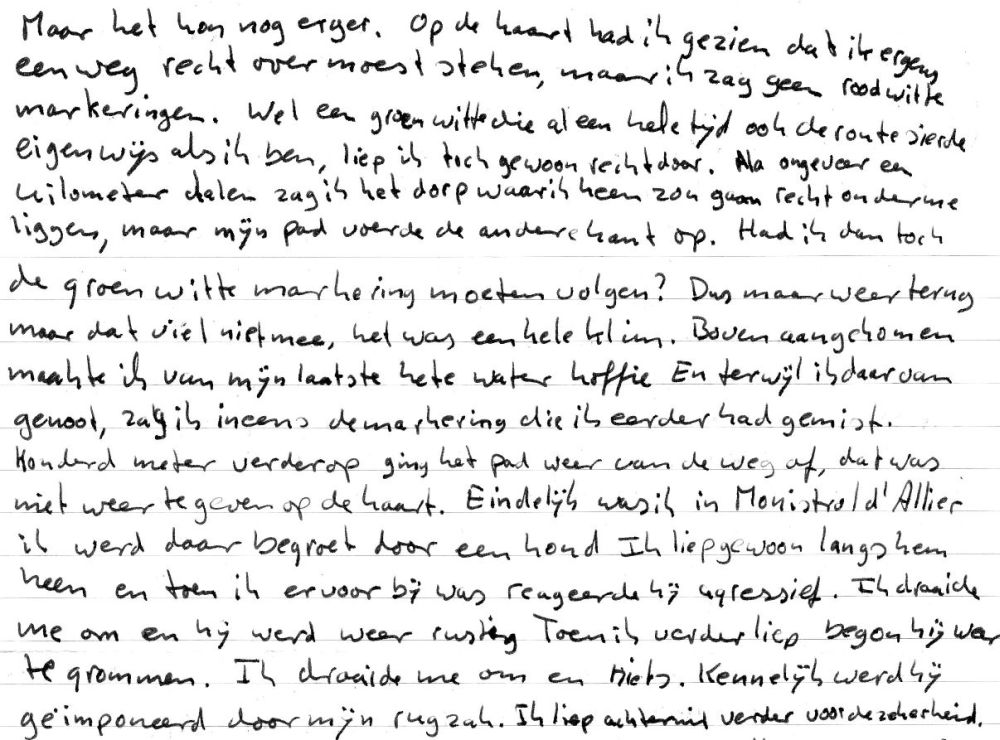 Maar het kon nog erger. Op de kaart had ik gezien dat ik ergens
een weg recht over moest steken, maar ik zag geen roodwitte
markeringen. Wel een groenwitte die al een hele tijd ook de route sierde
eigenwijs als ik ben, liep ik toch gewoon rechtdoor. Na ongeveer een
kilometer dalen zag ik het dorp waar ik heen zou gaan recht onder me
liggen, maar mijn pad voerde de andere kant op. Had ik dan toch
de groen witte markering moeten volgen? Dus maar weer terug
maar dat viel niet mee, het was een hele klim. Boven aangekomen
maakte ik van mijn laatste hete water koffie En terwijl ik daar van
genoot, zag ik ineens de markering die ik eerder had gemist.
Honderd meter verderop ging het pad weer van de weg af, dat was
niet weer te geven op de kaart. Eindelijk was ik in Monistrol d'Allier
ik werd daar begroet door een hond Ik liep gewoon langs hem
heen en toen ik er voor bij was reageerde hij agressief. Ik draaide
me om en hij werd weer rustig Toen ik verder liep begon hij weer
te grommen. Ik draaide me om en niets. Kennelijk werd hij
geïmponeerd door mijn rugzak. Ik liep achteruit verder voor de zekerheid.